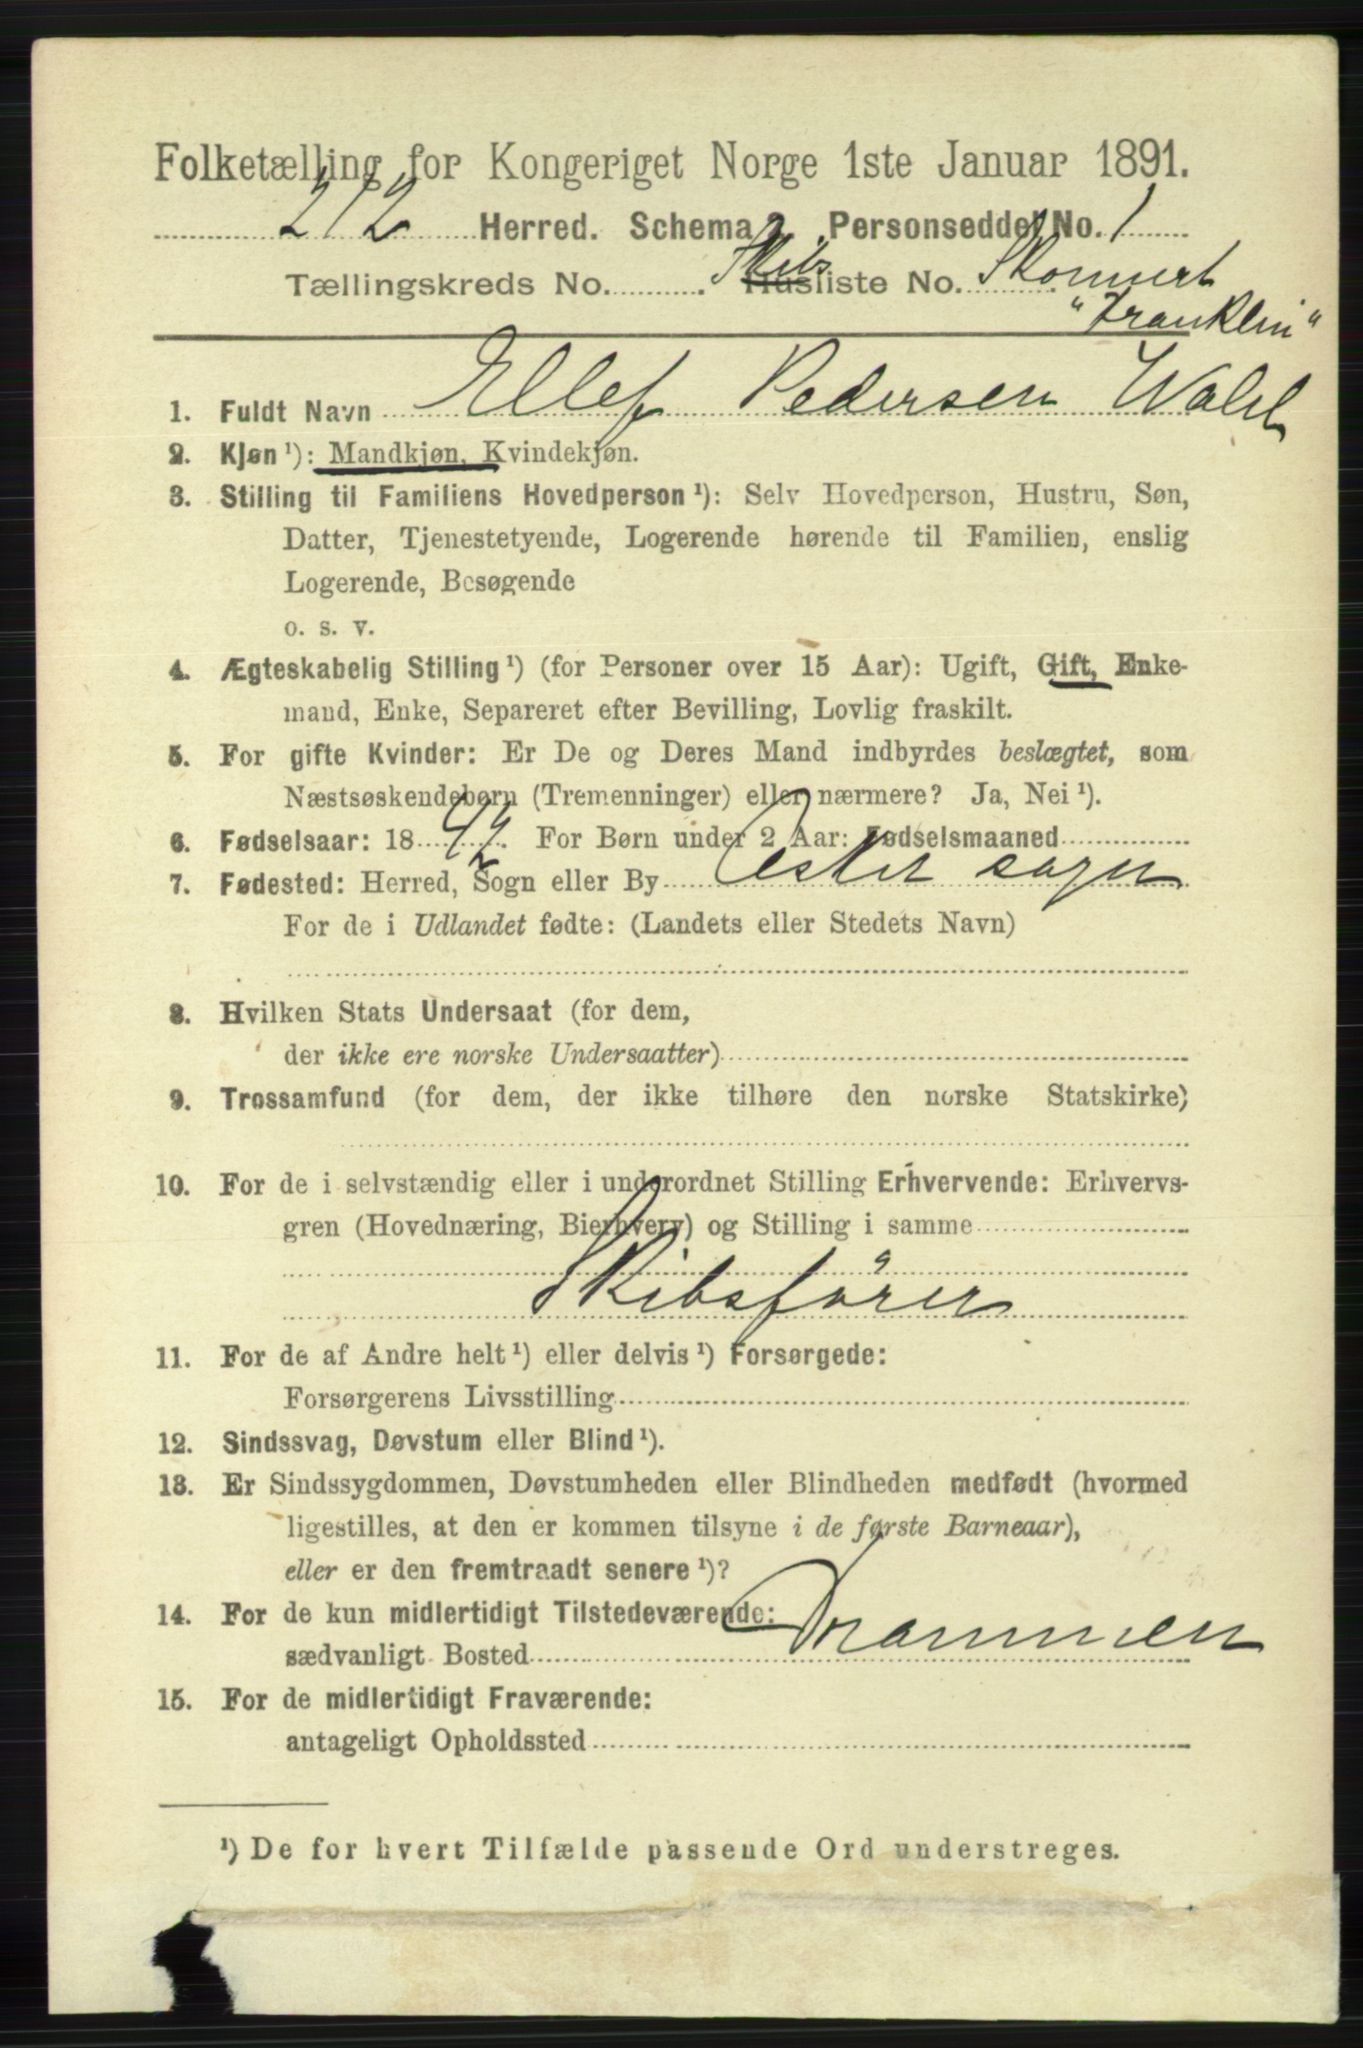 Folketælling for Kongeriget Norge 1ste Januar 1891.
212 Herred. Schema 2. Personseddel No. 1
Tællingskreds No. Skibs Husliste No. Skonnert
"Franklin"
1. Fuldt Navn Ellef Pedersen
2. Kjøn ¹): Mandkjøn, Kvindekjøn.
3. Stilling til Familiens Hovedperson ¹): Selv Hovedperson, Hustru, Søn,
Datter, Tjenestetyende, Logerende hørende til Familien, enslig
Logerende, Besøgende
o. s. v.
4. Ægteskabelig Stilling ¹) (for Personer over 15 Aar): Ugift, Gift, Enke-
mand, Enke, Separeret efter Bevilling, Lovlig fraskilt.
5. For gifte Kvinder: Er De og Deres Mand indbyrdes beslægtet, som
Næstsøskendebørn (Tremenninger) eller nærmere? Ja, Nei ¹).
6. Fødselsaar: 1842. For Børn under 2 Aar: Fødselsmaaned
7. Fødested: Herred, Sogn eller By Asker sogn
For de i Udlandet fødte: (Landets eller Stedets Navn)
8. Hvilken Stats Undersaat (for dem,
der ikke ere norske Undersaatter)
9. Trossamfund (for dem, der ikke tilhøre den norske Statskirke)
10. For de i selvstændig eller i underordnet Stilling Erhvervende: Erhvervs-
gren (Hovednæring, Bierhverv) og Stilling i samme
Skibsfører
11. For de af Andre helt ¹) eller delvis ¹) Forsørgede:
Forsørgerens Livsstilling
12. Sindssvag, Døvstum eller Blind ¹).
13. Er Sindssygdommen, Døvstumheden eller Blindheden medfødt (hvormed
ligestilles, at den er kommen tilsyne i de første Barneaar),
eller er den fremtraadt senere ¹)?
14. For de kun midlertidigt Tilstedeværende:
sædvanligt Bosted Drammen
15. For de midlertidigt Fraværende:
antageligt Opholdssted
¹) De for hvert Tilfælde passende Ord understreges.